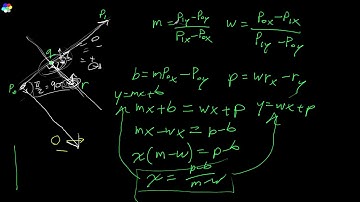 P₁
m = P₁y-P₀y / P₁x-P₀x   w = P₀x-P₁x / P₁y-P₀y
q
θ
P₀
π/2=90°
r
b = mP₀x-P₀y   p = wrx-ry
y=mx+b
mx+b = wx+p   y=wx+p
mx-wx = p-b
x(m-w) = p-b
x = p-b / m-w